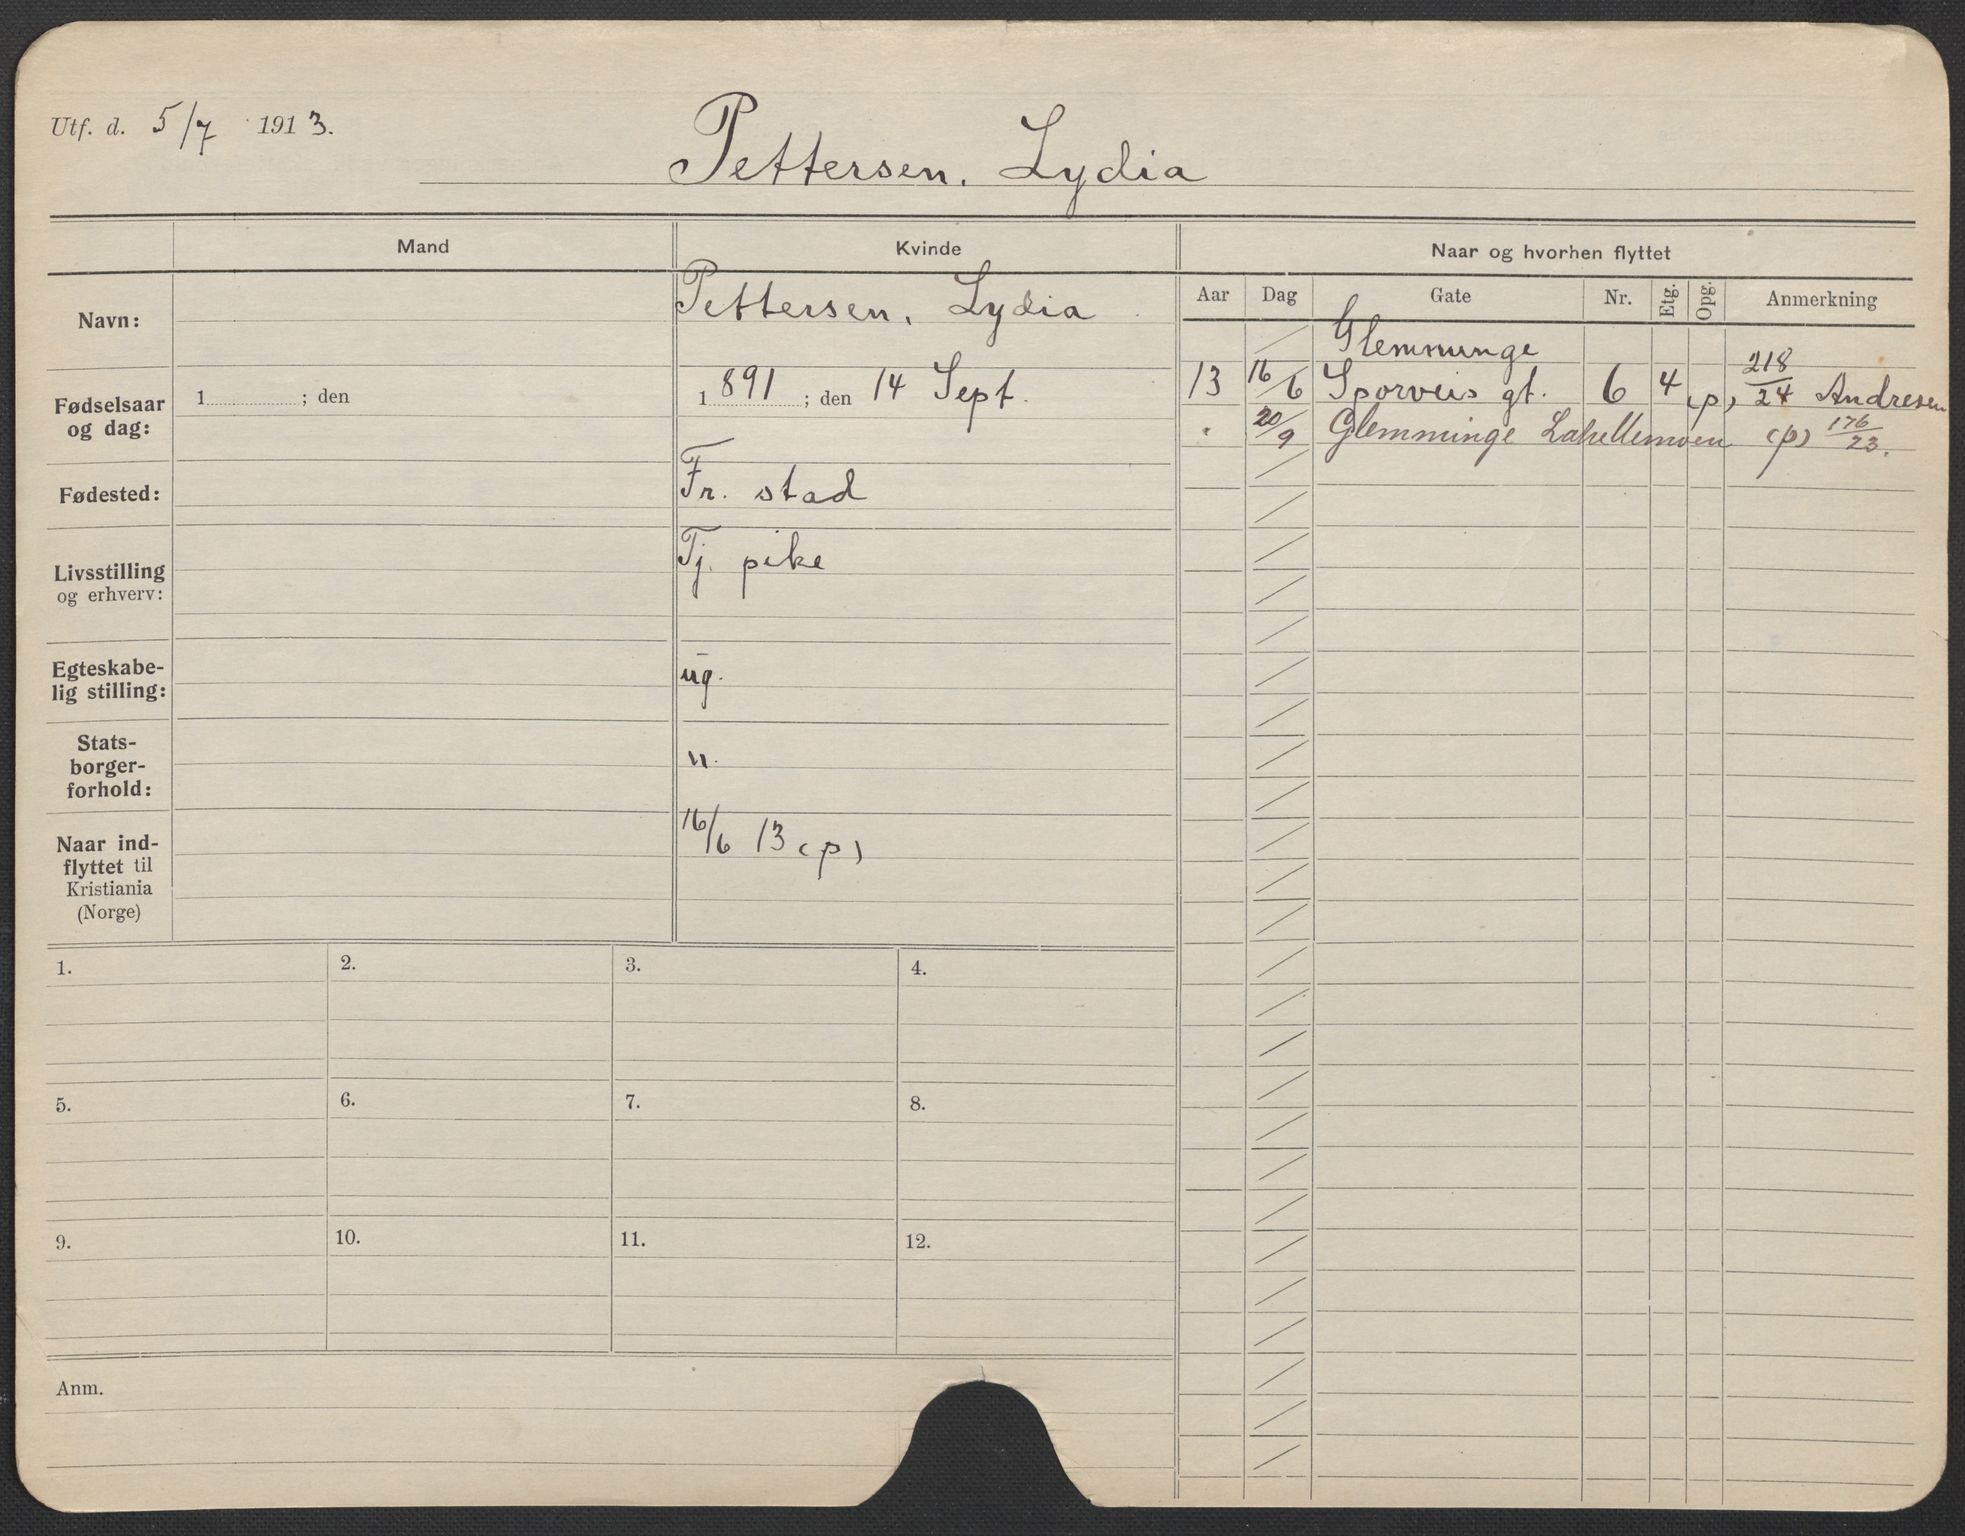 Utf. d. 5/7 1913.
Pettersen, Lydia
Mand
Kvinde
Naar og hvorhen flyttet
Aar Dag Gate Nr. Etg. Opg. Anmerkning
Navn:
Pettersen, Lydia
Fødselsaar og dag:
1 ; den
1891 ; den 14 Sept.
Fødested:
Fr. stad
Livsstilling og erhverv:
Tj. pike
Egteskabe-
lig stilling:
ug.
Stats-
borger-
forhold:
n.
Naar ind-
flyttet til
Kristiania
(Norge)
16/6 13 (p)
Glemminge
13 16/6 Sporveis gt. 6 4 (p) 218/24 Andresen
" 20/9 Glemminge (p) 176/23.
1. 2. 3. 4.
5. 6. 7. 8.
9. 10. 11. 12.
Anm.